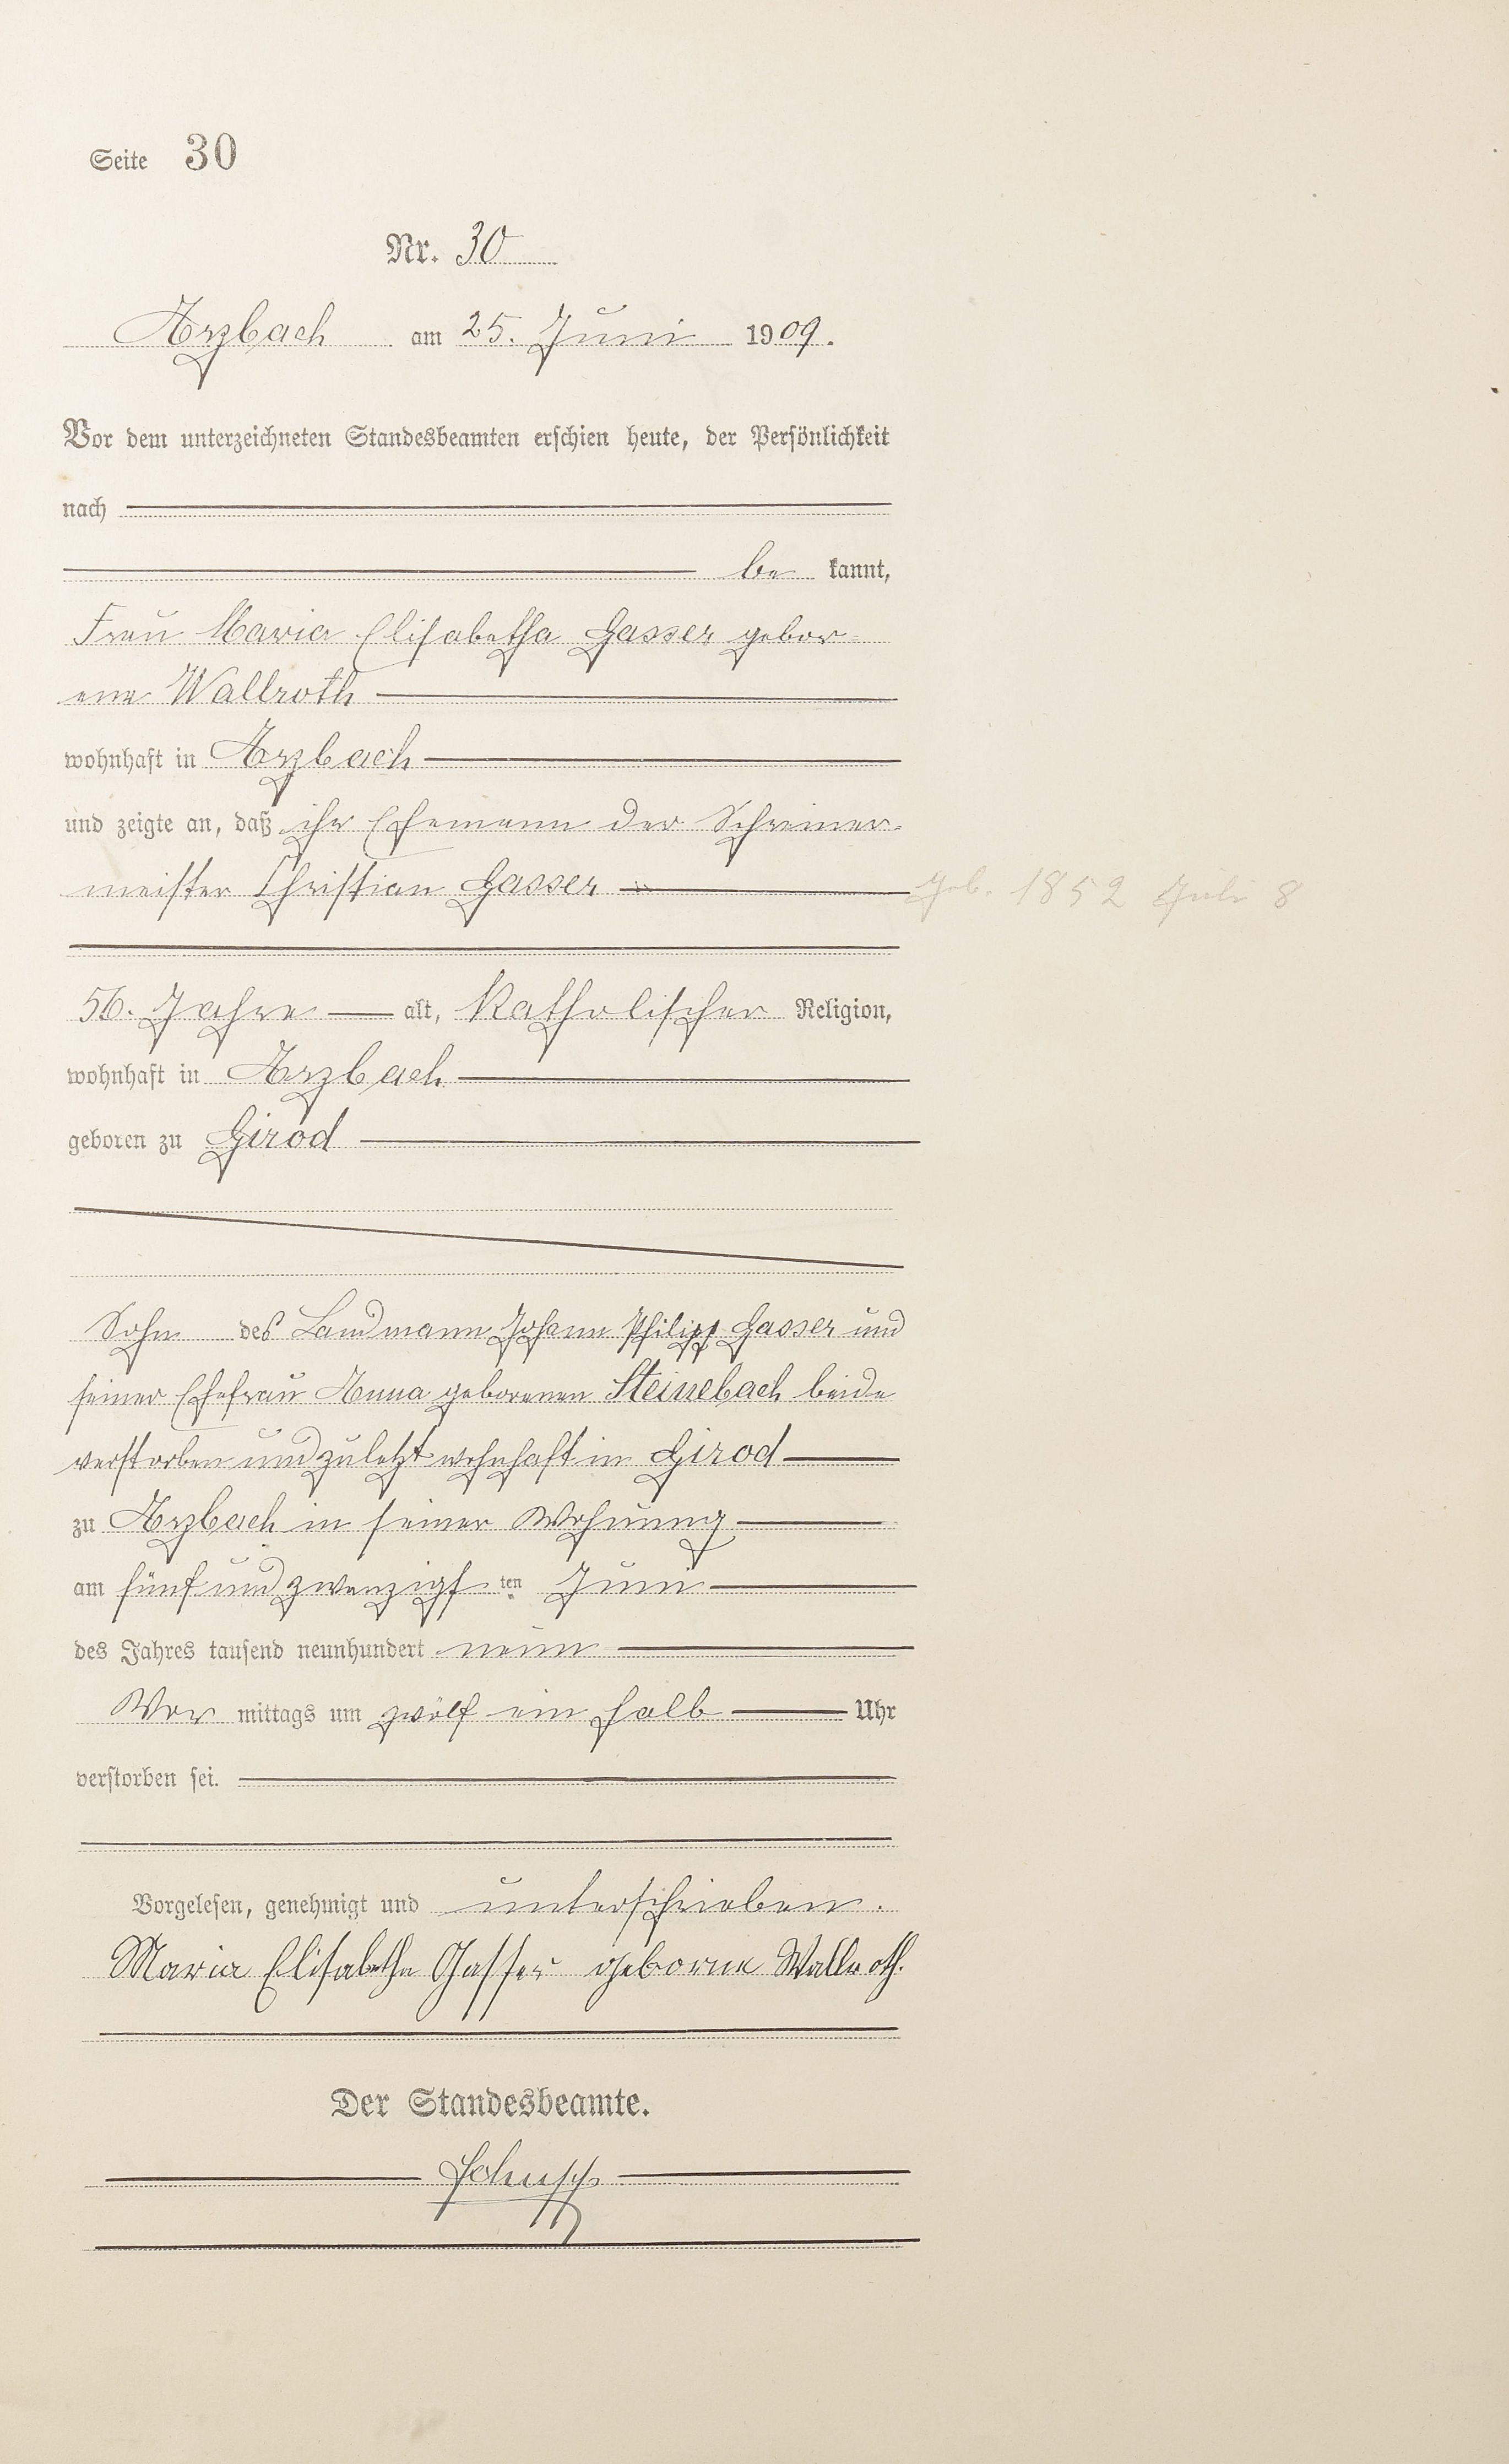 Seite 30
Nr. 30
Arzbach am 25. Juni 1909.
Vor dem unterzeichneten Standesbeamten erschien heute, der Persönlichkeit
nach
be kannt,
Frau Maria Elisabetha Gasser gebor=
ene Wallroth
wohnhaft in Arzbach
und zeigte an, daß ihr Ehemann der Schreiner-
meister Christian Gasser geb. 1852 Juli 8
56. Jahre alt, katholischer Religion,
wohnhaft in Arzbach
geboren zu Girod
Sohn des Landmann Johann Philipp Gasser und
seiner Ehefrau Anna geborenen Steinebach beide
verstorben und zuletzt wohnhaft in Girod
zu Arzbach in seiner Wohnung
am fünf und zwanzigs ten Juni
des Jahres tausend neunhundert neun
Vor mittags um zwölf ein halb Uhr
verstorben sei.
Vorgelesen, genehmigt und unterschrieben.
Maria Elisabetha Gasser geborne Wallroth.
Der Standesbeamte.